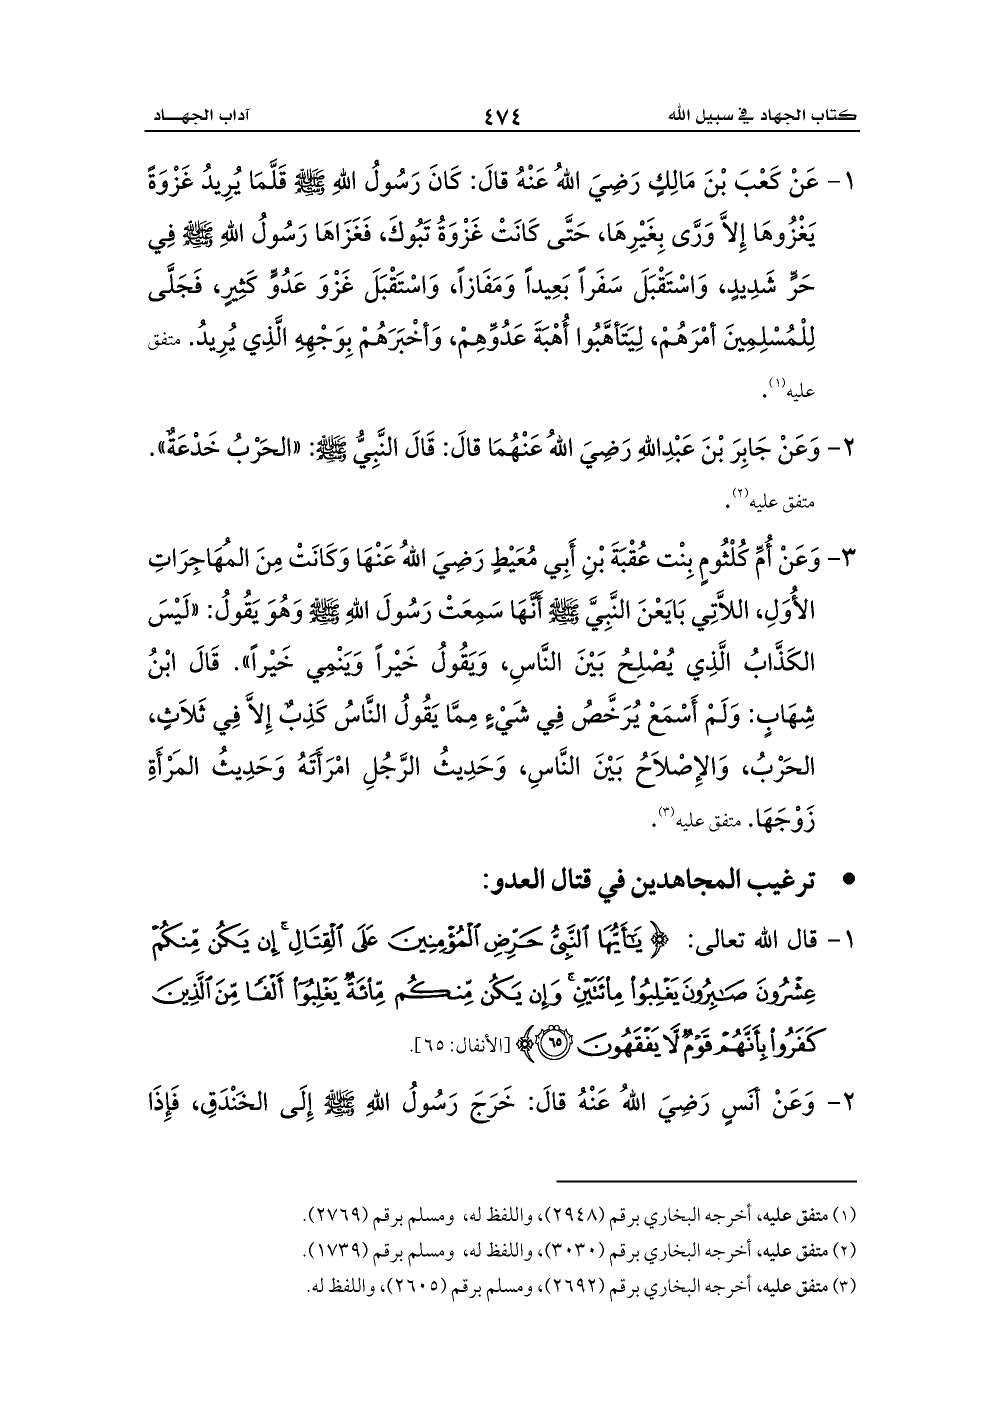 كتاب الجهاد في سبيل الله ٤٧٤ آداب الجهـــاد
١- عَنْ كَعْبَ بْنَ مَالِكٍ رَضِيَ اللهُ عَنْهُ قالَ: كَانَ رَسُولُ اللهِ ﷺ قَلَّمَا يُرِيدُ غَزْوَةً
يَغْزُوهَا إِلاَّ وَرَّى بِغَيْرِهَا، حَتَّى كَانَتْ غَزْوَةُ تَبُوكَ، فَغَزَاهَا رَسُولُ اللهِ ﷺ فِي
حَرٍّ شَدِيدٍ، وَاسْتَقْبَلَ سَفَراً بَعِيداً وَمَفَازاً، وَاسْتَقْبَلَ غَزْوَ عَدُوٍّ كَثِيرٍ، فَجَلَّى
لِلْمُسْلِمِينَ أمْرَهُمْ، لِيَتَأهَّبُوا أُهْبَةَ عَدُوِّهِمْ، وَأخْبَرَهُمْ بِوَجْهِهِ الَّذِي يُرِيدُ. متفق
عليه(١).
٢- وَعَنْ جَابِرَ بْنَ عَبْدِاللهِ رَضِيَ اللهُ عَنْهُمَا قالَ: قَالَ النَّبِيُّ ﷺ: «الحَرْبُ خَدْعَةٌ».
متفق عليه(٢).
٣- وَعَنْ أُمِّ كُلْثُومٍ بِنْت عُقْبَةَ بْنِ أَبِي مُعَيْطٍ رَضِيَ اللهُ عَنْهَا وَكَانَتْ مِنَ المُهَاجِرَاتِ
الأُوَلِ، اللاَّتِي بَايَعْنَ النَّبِيَّ ﷺ أَنَّهَا سَمِعَتْ رَسُولَ اللهِ ﷺ وَهُوَ يَقُولُ: «لَيْسَ
الكَذَّابُ الَّذِي يُصْلِحُ بَيْنَ النَّاسِ، وَيَقُولُ خَيْراً وَيَنْمِي خَيْراً». قَالَ ابْنُ
شِهَابٍ: وَلَمْ أَسْمَعْ يُرَخَّصُ فِي شَيْءٍ مِمَّا يَقُولُ النَّاسُ كَذِبٌ إِلاَّ فِي ثَلاَثٍ،
الحَرْبُ، وَالإِصْلاَحُ بَيْنَ النَّاسِ، وَحَدِيثُ الرَّجُلِ امْرَأَتَهُ وَحَدِيثُ المَرْأَةِ
زَوْجَهَا. متفق عليه(٣).
● ترغيب المجاهدين في قتال العدو:
١- قال الله تعالى: ﴿ يَـٰٓأَيُّهَا ٱلنَّبِىُّ حَرِّضِ ٱلْمُؤْمِنِينَ عَلَى ٱلْقِتَالِ ۚ إِن يَكُن مِّنكُمْ
عِشْرُونَ صَـٰبِرُونَ يَغْلِبُوا۟ مِا۟ئَتَيْنِ ۚ وَإِن يَكُن مِّنكُم مِّا۟ئَةٌ يَغْلِبُوٓا۟ أَلْفًا مِّنَ ٱلَّذِينَ
كَفَرُوا۟ بِأَنَّهُمْ قَوْمٌ لَّا يَفْقَهُونَ ٦٥﴾ [الأنفال: ٦٥].
٢- وَعَنْ أنَسٍ رَضِيَ اللهُ عَنْهُ قالَ: خَرَجَ رَسُولُ اللهِ ﷺ إِلَى الخَنْدَقِ، فَإِذَا
(١) متفق عليه، أخرجه البخاري برقم (٢٩٤٨)، واللفظ له، ومسلم برقم (٢٧٦٩).
(٢) متفق عليه، أخرجه البخاري برقم (٣٠٣٠)، واللفظ له، ومسلم برقم (١٧٣٩).
(٣) متفق عليه، أخرجه البخاري برقم (٢٦٩٢)، ومسلم برقم (٢٦٠٥)، واللفظ له.